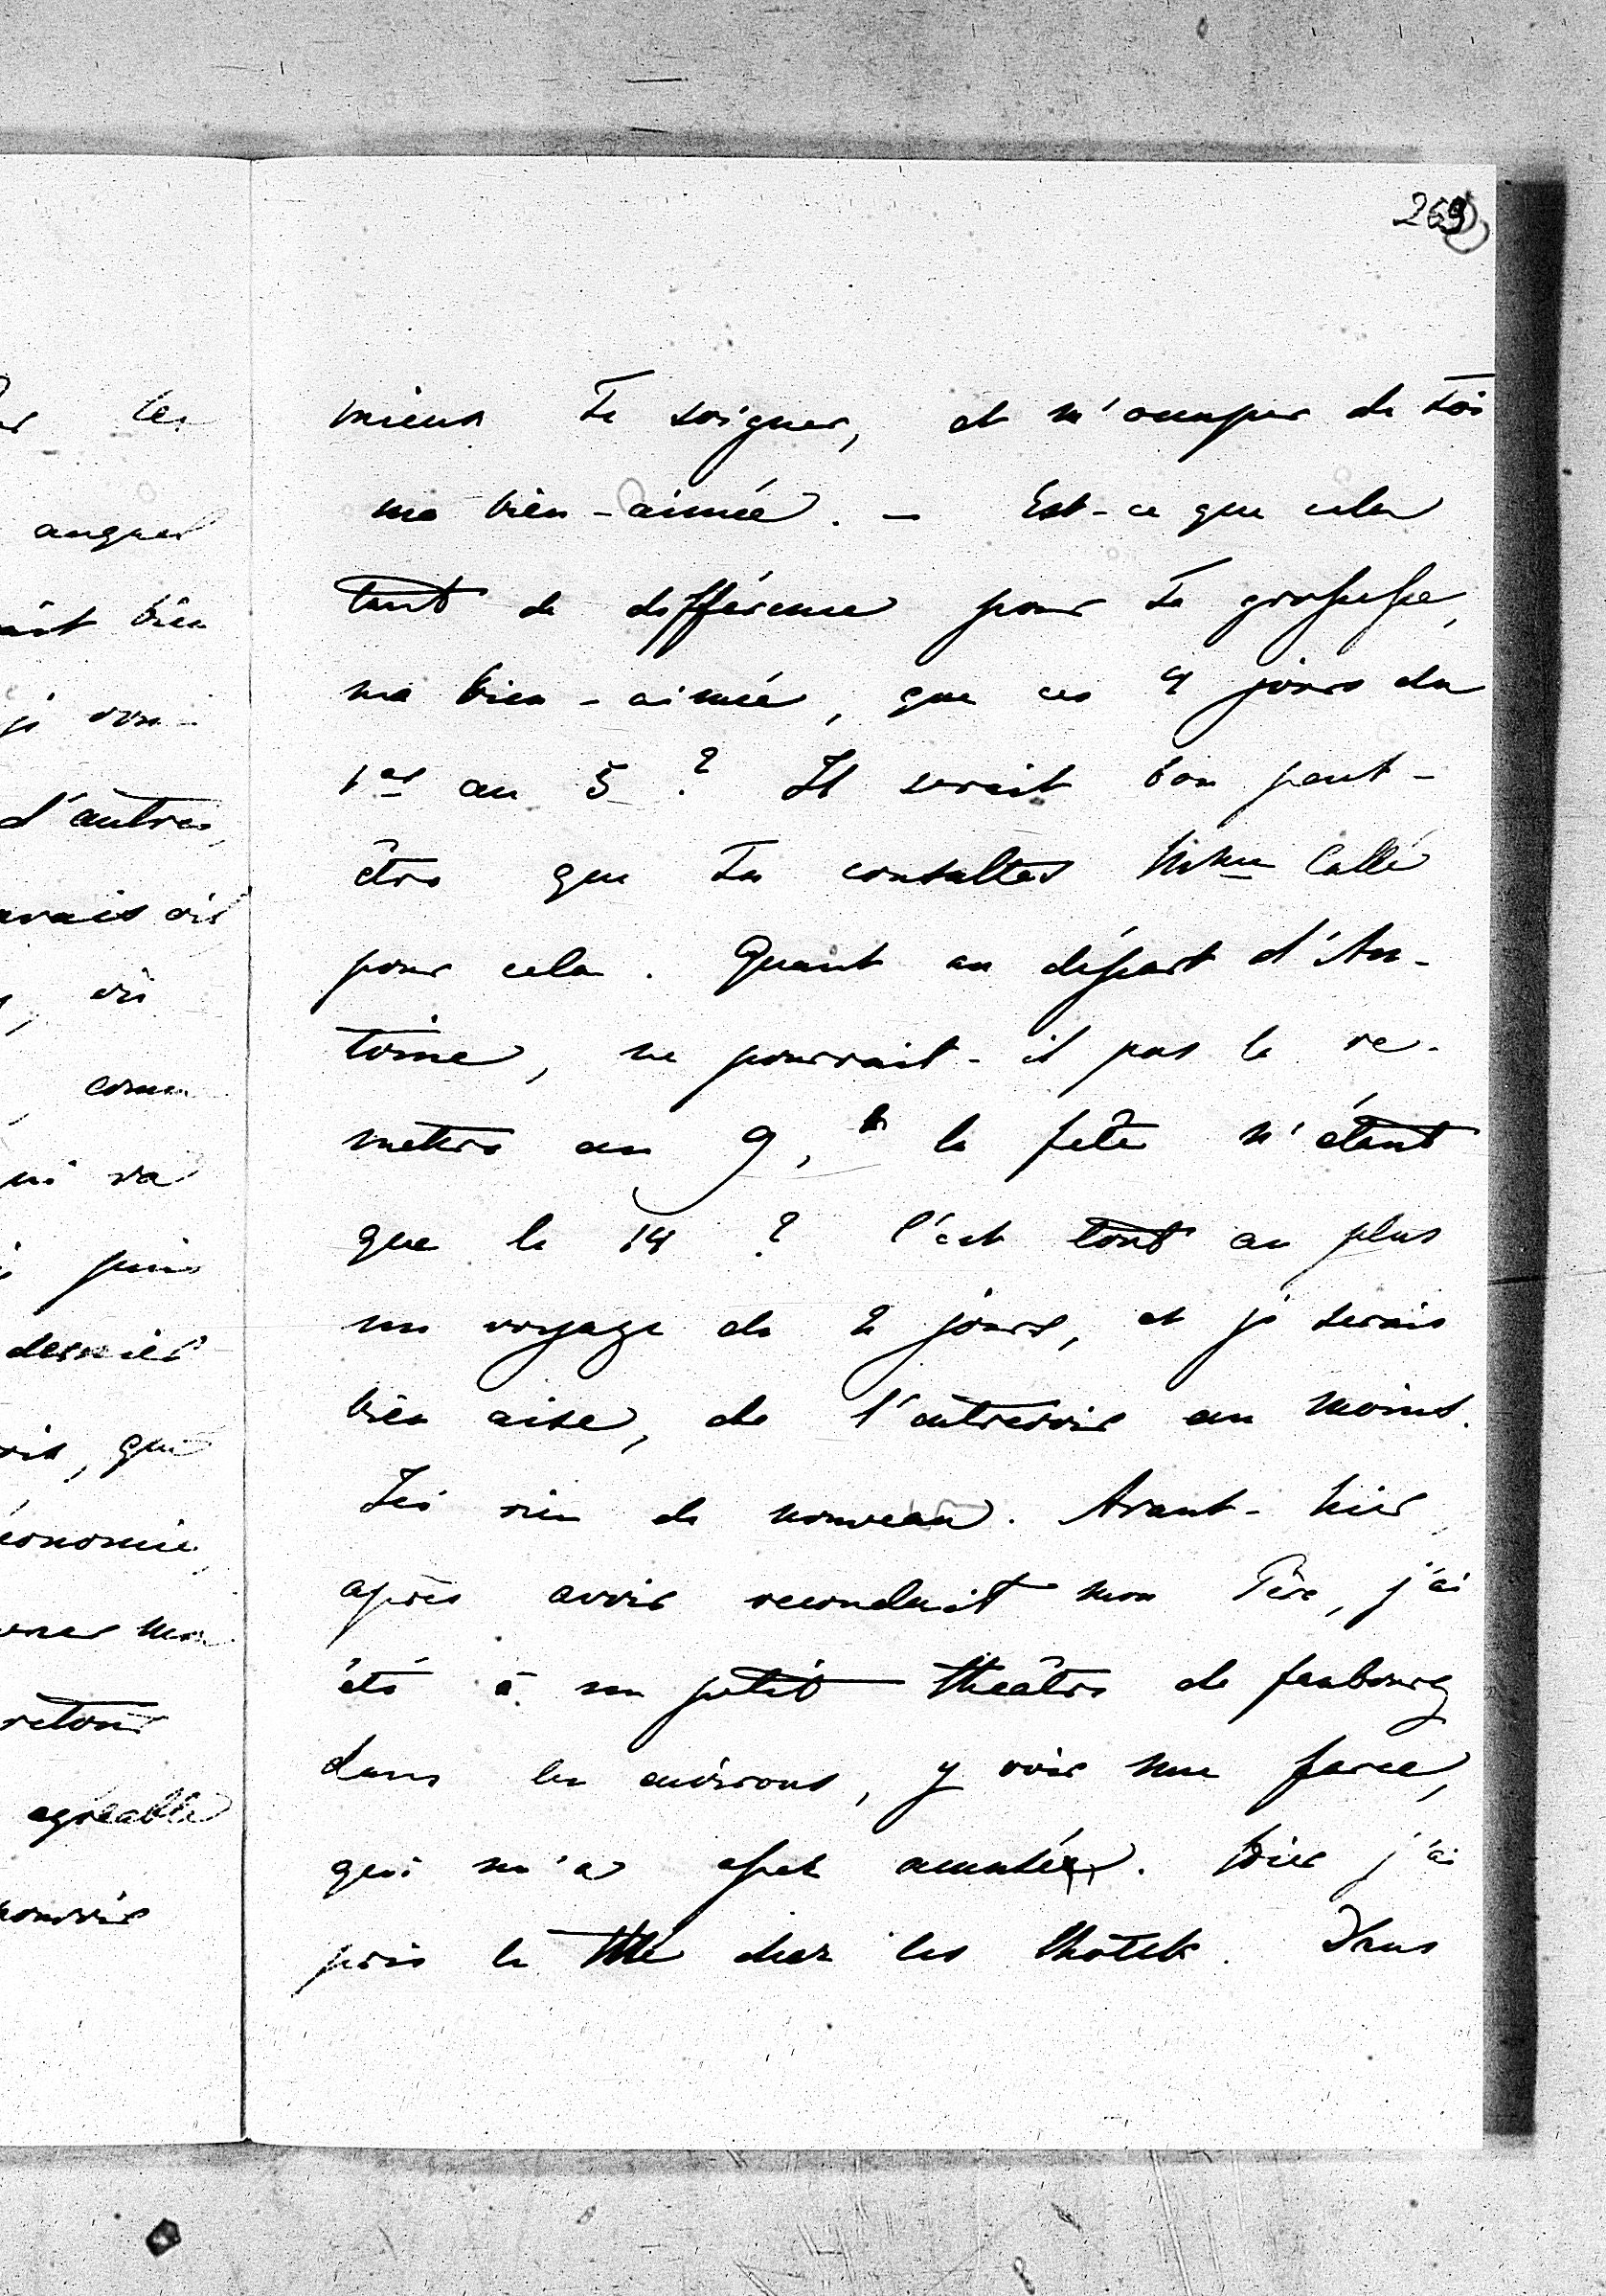 269
mieux Te soigner, et m'occuper de Toi
ma bien-aimée. — Est-ce que cela
tant de différence pour Ta grossesse,
ma bien-aimée, que ces 4 jours du
1er au 5 ? Il serait bon peut-
être que Tu consultes Mme Callé
pour cela. Quant au départ d'An-
toine, ne pourrait-il pas le re-
mettre au 9, la fête n'étant
que le 14 ? C'est tout au plus
un voyage de 2 jours, et je serais
bien aise, de l'entrevoir au moins.
Ici rien de nouveau. Avant-hier
après avoir reconduit mon Père, j'ai
été à un petit théâtre de faubourg
dans les environs, y voir une farce,
qui m'a assez amusée. Hier j'ai
pris le thé chez les Chotek. Dans
les
auquel
bien
d'autres,
avais
comm
va
puis
dernier
que
économie,
retour
agréable